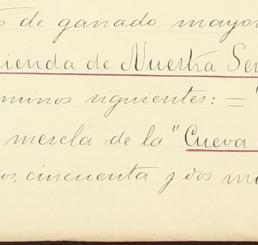 s de ganado mayor
ienda de Nuestra Se
minos siguientes: = "
mezcla de la "Cueva
os, cincuenta y dos m